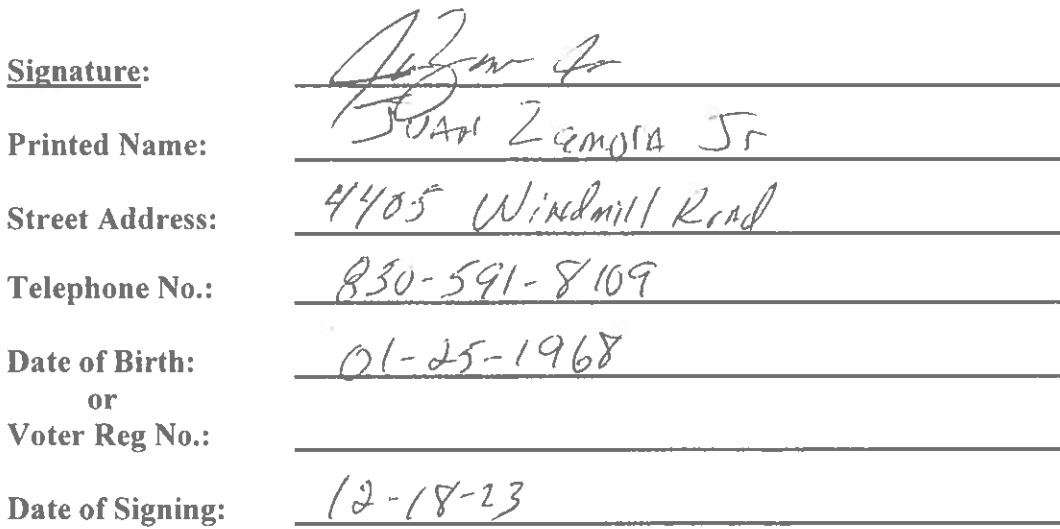 Signature:
Printed Name: Juan Zamora Jr
Street Address: 4405 Windmill Road
Telephone No.: 830-591-8109
Date of Birth: 01-25-1968
or
Voter Reg No.:
Date of Signing: 12-18-23